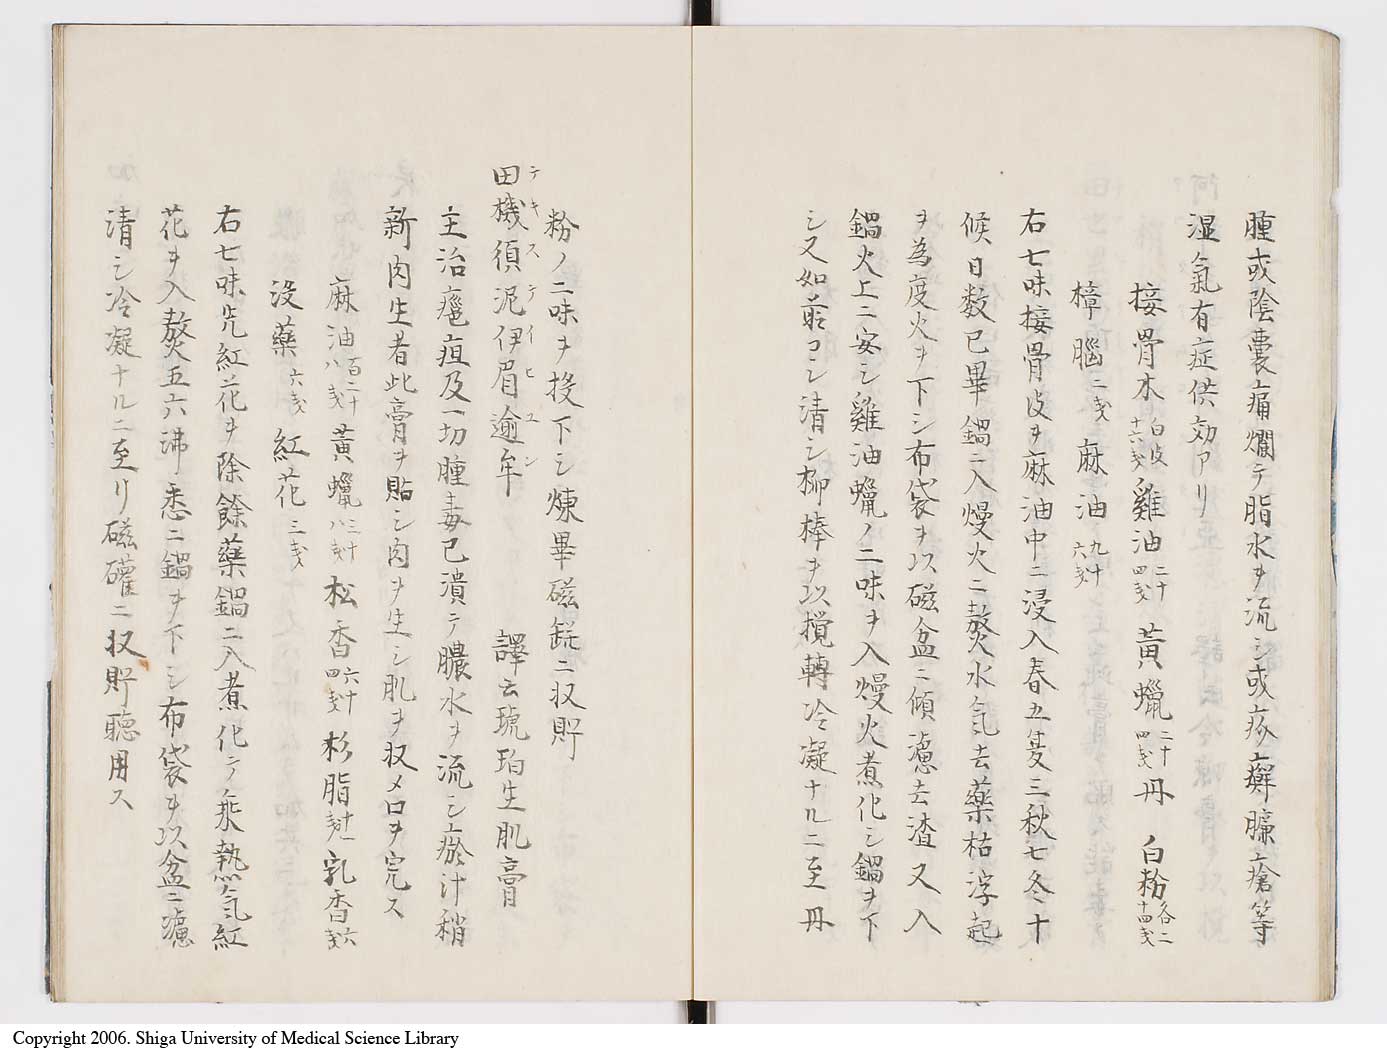 腫或陰嚢痛爛テ脂水ヲ流シ或疥癬臁瘡等
湿氣有症供効アリ
接骨木白皮十六戔 雞油二十四戔 黄蠟二十四戔 丹 白粉各二十四戔
樟腦二戔 麻油九十六戔
右七味接骨皮ヲ麻油中ニ浸入春五夏三秋七冬十
候日数已畢鍋ニ入熳火ニ熬水氣去藥枯浮起
ヲ為度火ヲ下シ布袋ヲ以磁盆ニ傾濾去渣又入
鍋火上ニ安シ雞油蠟ノ二味ヲ入熳火煮化シ鍋ヲ下
シ又如前コシ清シ柳棒ヲ以撹轉冷凝ナルニ至丹
粉ノ二味ヲ投下シ煉畢磁鋎ニ収貯
田機須泥伊眉逾牟 譯云琥珀生肌膏
テキステイヒユン
主治癰疽及一切腫毒已潰テ膿水ヲ流シ瘀汁稍
新肉生者此膏ヲ貼シ肉ヲ生シ肌ヲ収メ口ヲ完ス
麻油百二十八戔 黄蠟三十八戔 松香六十四戔 杉脂廿一戔 乳香六戔
没藥六戔 紅花三戔
右七味先紅花ヲ除餘藥鍋ニ入煮化テ乘熱氣紅
花ヲ入熬五六沸悉ニ鍋ヲ下シ布袋ヲ以盆ニ濾
清シ冷凝ナルニ至リ磁礶ニ収貯聴用ス
Copyright 2006. Shiga University of Medical Science Library